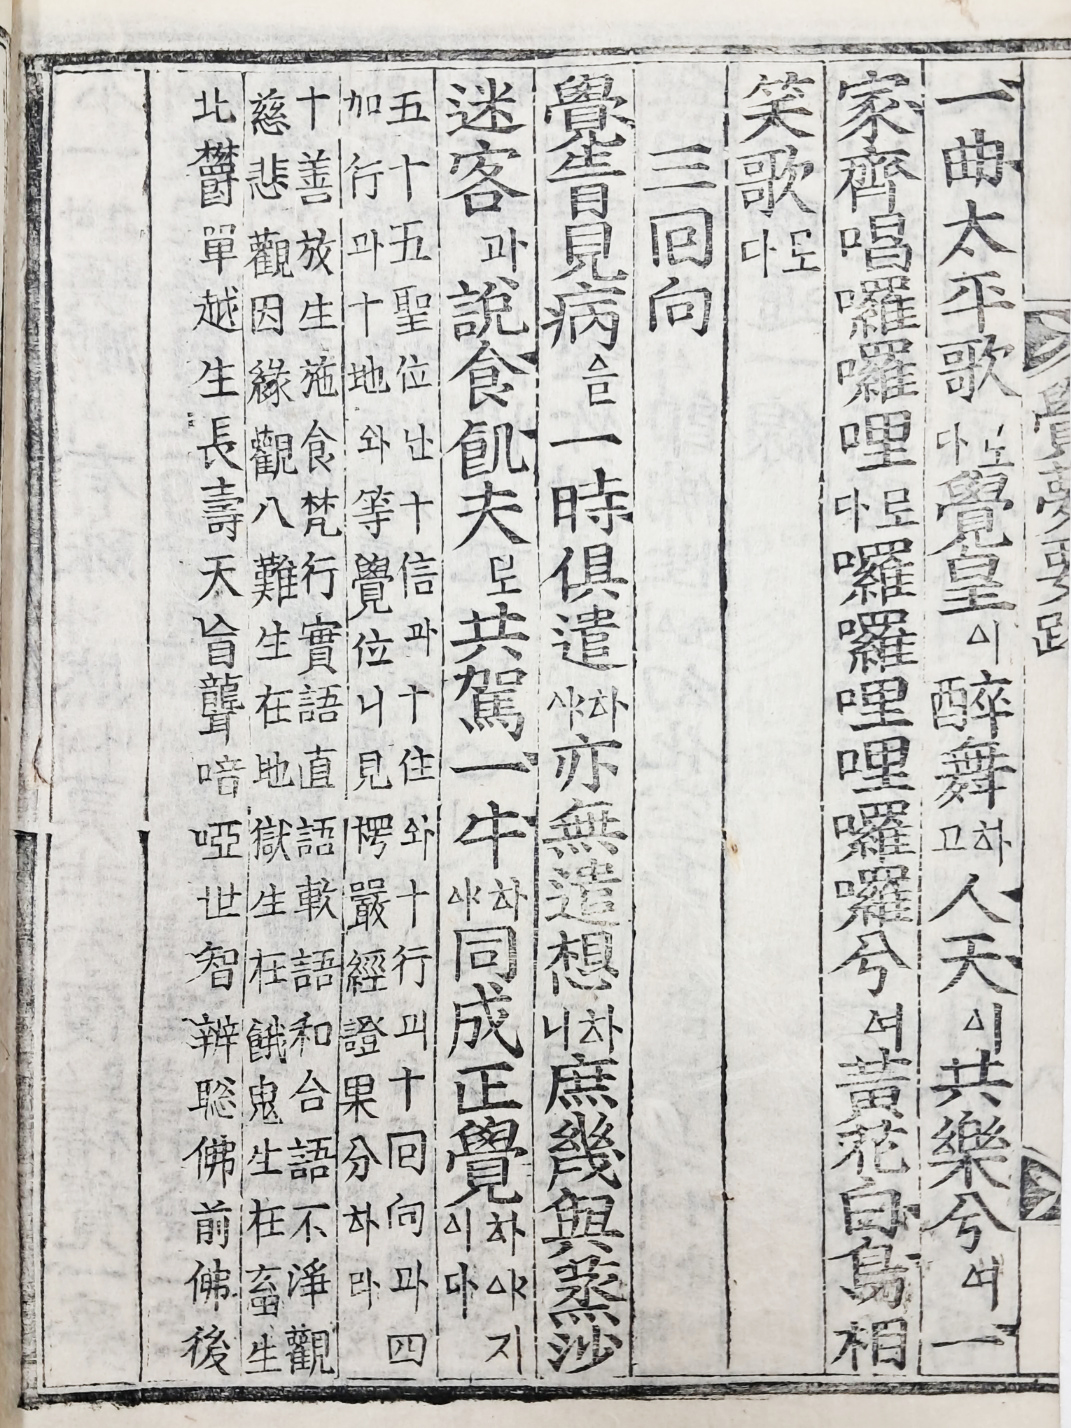 覺夢要
一曲太平歌노다覺皇이醉舞하고人天이共樂兮여一
家齊唱囉囉哩로다囉囉哩哩囉囉兮여黃花白鳥相
笑歌로다
三回向
覺眚見病은一時俱遣하야亦無遣想하니庶幾與蒸沙
迷客과說食飢夫로共駕一牛하야同成正覺하야지이다
五十五聖位난十信과十住와十行긔十回向과四
加行과十地와等覺位니見愣嚴經證果分하라
十善放生施食梵行實語直語軟語和合語不淨觀
慈悲觀因緣觀八難生在地獄生在餓鬼生在畜生
北欝單越生長壽天盲聾喑啞世智辨聡佛前佛後